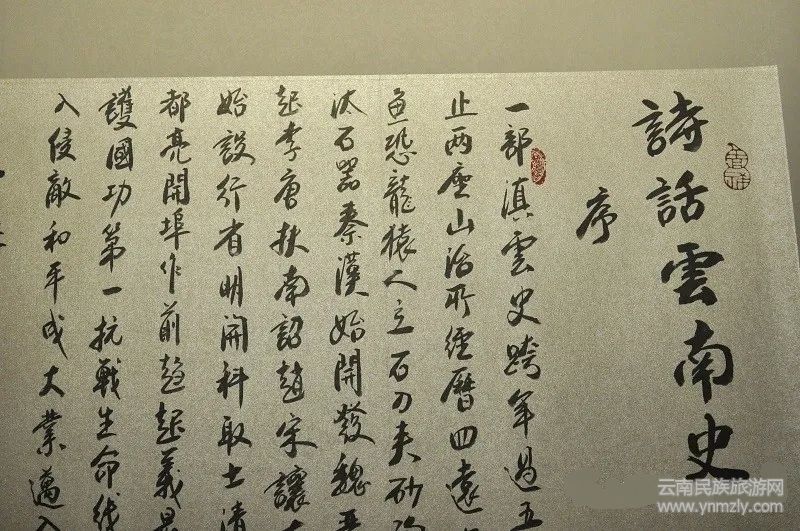 詩話雲南史
序
一部滇雲史跨年過五
止兩座山治所經曆四遠
魚恐龍猿人立石刀夫砂
汰石器秦漢始開發魏晋
起李唐扶南詔趙宋讓
始設行省明開科取士清
都亮開埠作前趋起義
護國功第一抗戰生命线
入侵敵和平成大業邁入
云南民族旅游网
www.ynmzly.com